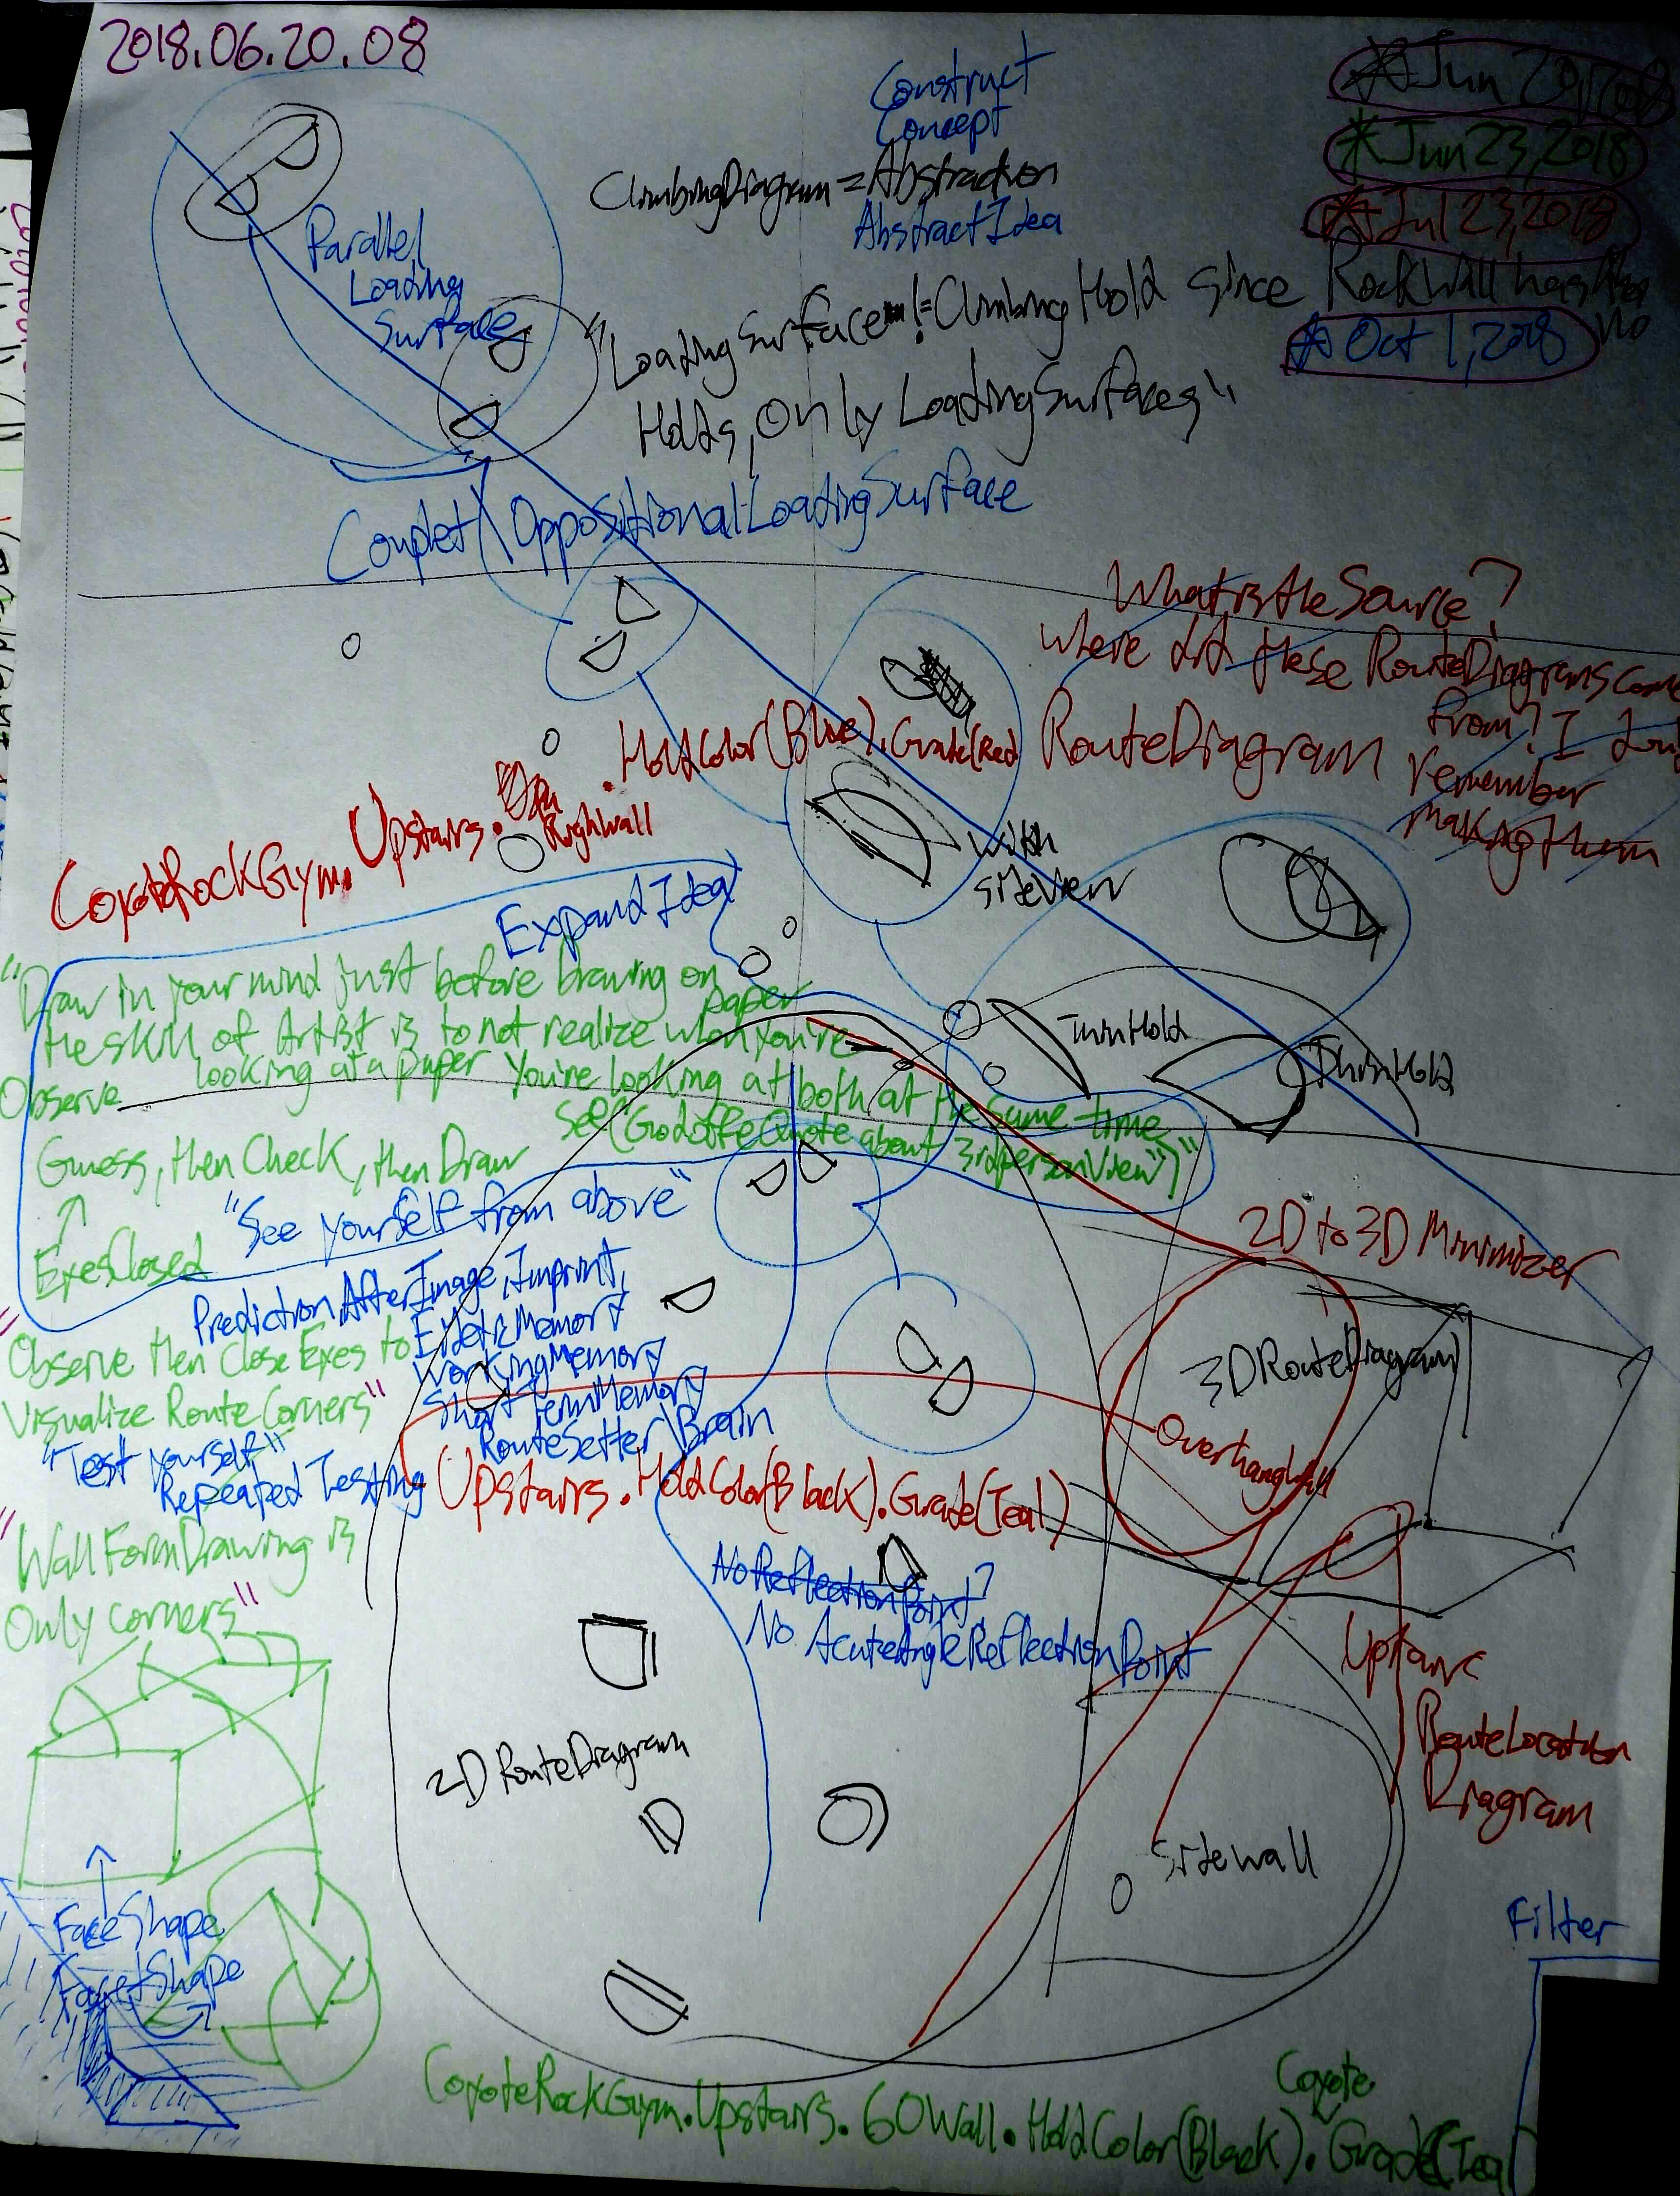 2018.06.20.08
Construct
Concept
ClimbingDiagram = Abstraction
AbstractIdea
*Jun 20, 2018
*Jun 23, 2018
*Jul 23, 2018
*Oct 1, 2018
Parallel
Loading
Surface
"LoadingSurface != ClimbingHold since RockWall has No
Holds, Only LoadingSurfaces"
Couplet\OppositionalLoadingSurface
WhatistheSource?
where did these RouteDiagrams come
from? I don't
remember
making them
CoyoteRockGym.Upstairs.
RightWall
.HoldColor(Blue).Grade(Red)
RouteDiagram
with
sideview
ExpandIdea
"Draw in your mind just before drawing on
paper
the skill of Artist is to not realize when you're
looking at a paper You're looking at both at the same time
See("Godoffe Quote about 3rdpersonView")"
Observe
Guess, then Check, then Draw
↑
EyesClosed
"See yourself from above"
TwinHold
TwinHold
Prediction, AfterImage, Imprint,
EideticMemory
WorkingMemory
ShortTermMemory
RouteSetter\Brain
"Observe then Close Eyes to
Visualize Route Corners"
"Test yourself"
Repeated Testing
2D to 3D Minimizer
3DRouteDiagram
OverhangWall
Upstairs.HoldColor(Black).Grade(Teal)
"Wall Form Drawing is
Only corners"
NoReflectionPoint?
No AcuteAngleReflectionPoint
2D RouteDiagram
RouteLocation
Diagram
Sidewall
FaceShape
FacetShape
Filter
Coyote
CoyoteRockGym.Upstairs.60Wall.HoldColor(Black).Grade(Teal